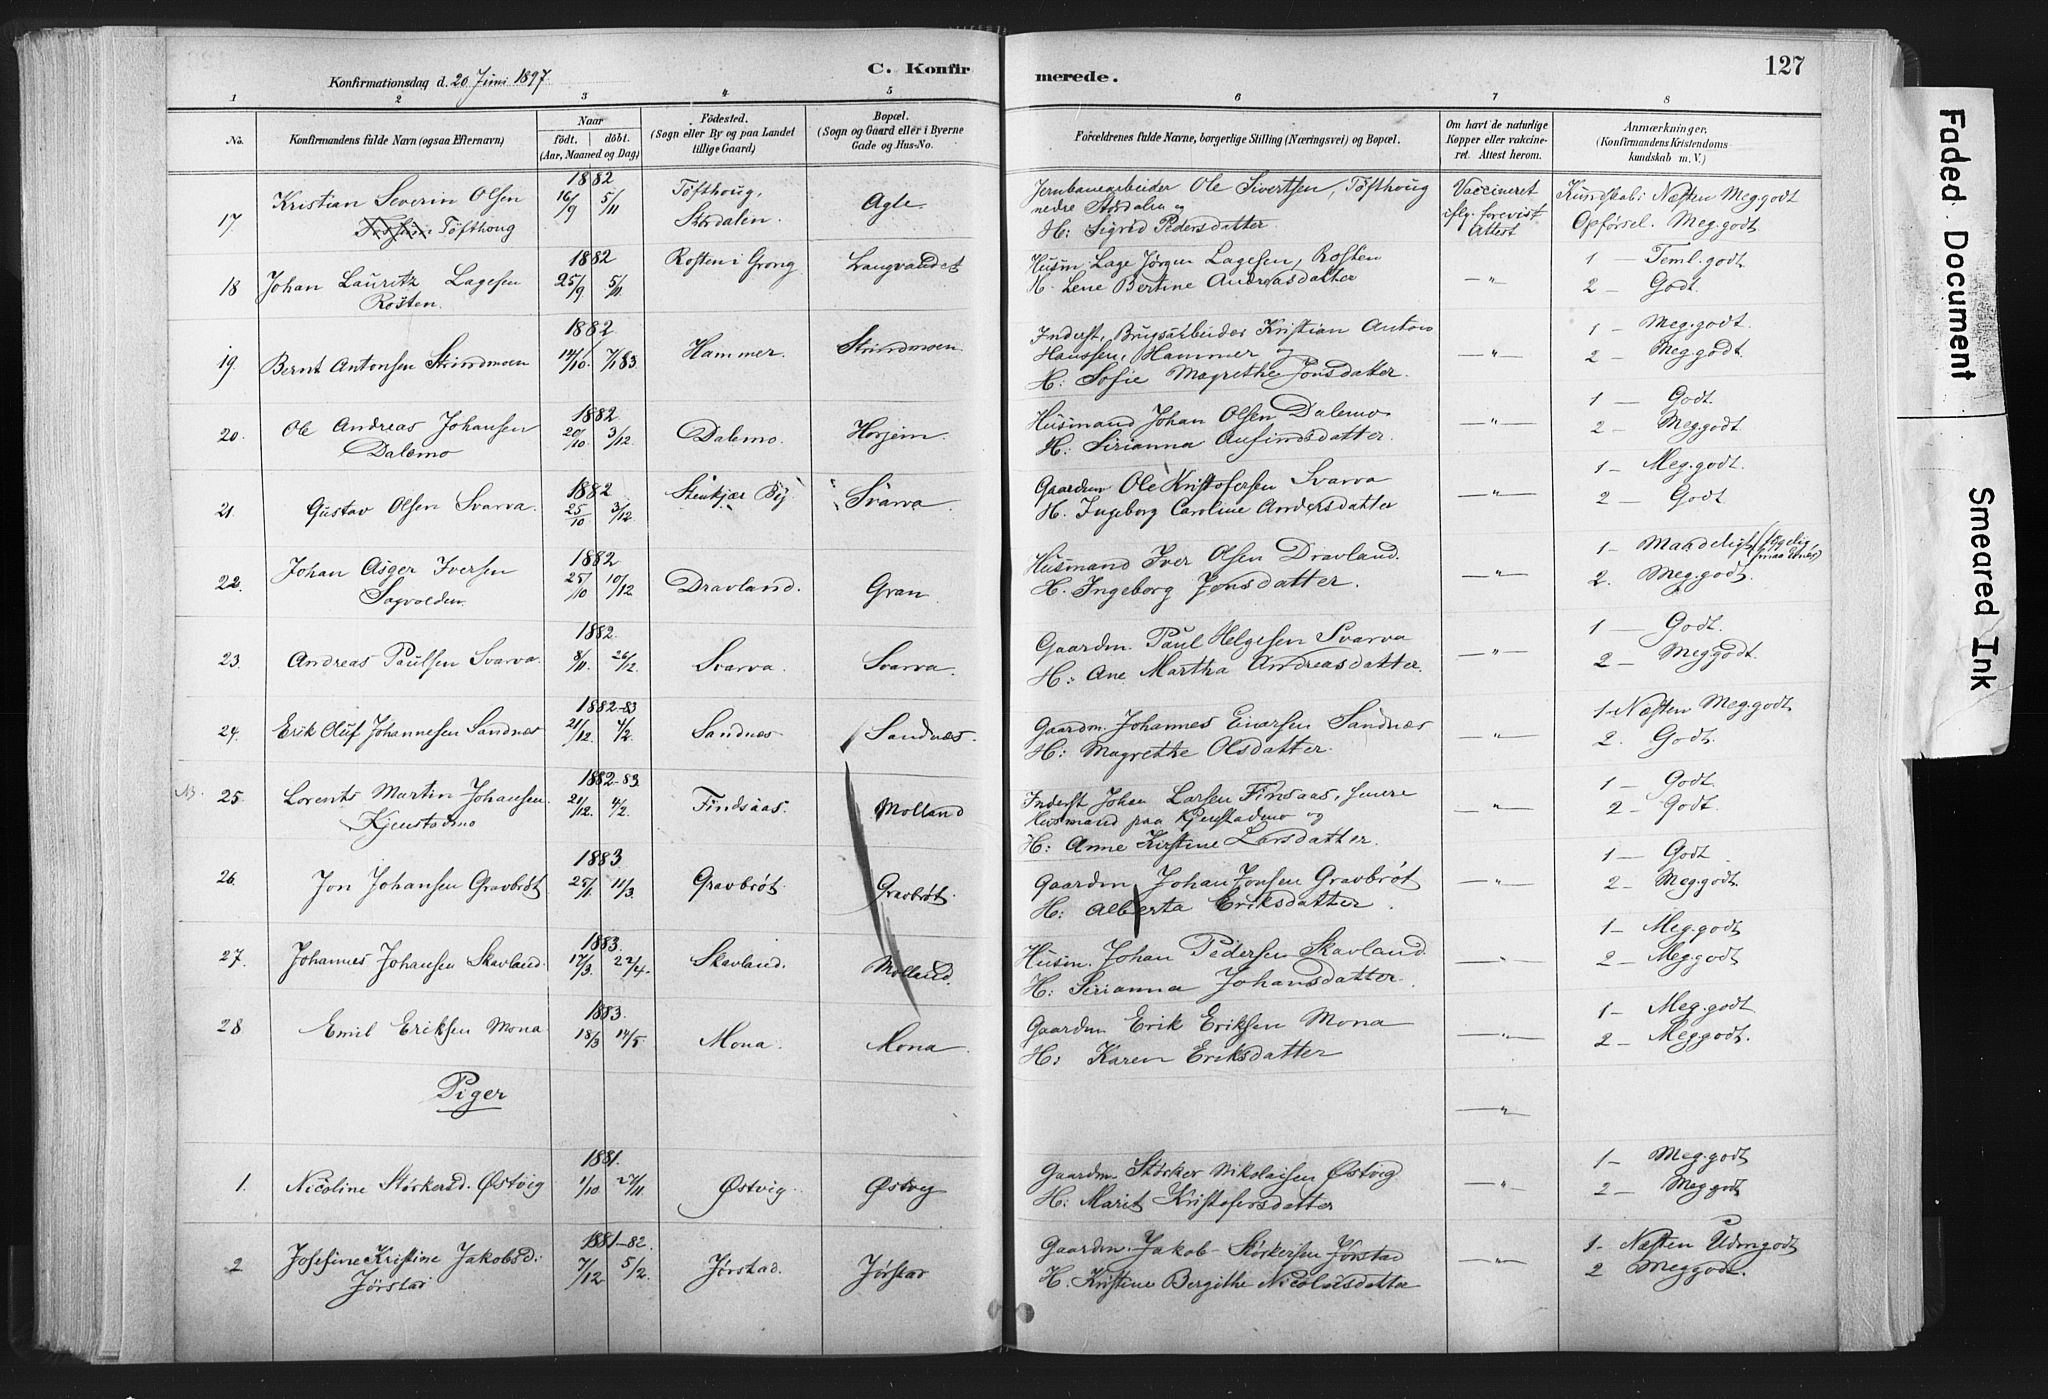 127
C. Konfirmerede.
Konfirmationsdag d. 20 Juni 1897.
1 2 3 4 5 6 7 8
No.
Konfirmandens fulde Navn (ogsaa Efternavn)
Naar
født. døbt.
(Aar, Maaned og Dag)
Fødested.
(Sogn eller By og paa Landet
tillige Gaard)
Bopæl.
(Sogn og Gaard eller i Byerne
Gade og Hus-No.
Forældrenes fulde Navne, borgerlige Stilling (Næringsvei) og Bopæl.
Om havt de naturlige
Kopper eller vakcine-
ret. Attest herom.
Anmærkninger,
(Konfirmandens Kristendoms-
kundskab m. V.)
17. Kristian Severin Olsen
Tøfthoug
1882 16/9 5/11
Tøfthoug, Stördalen.
Agle.
Jernbanearbeider Ole Sivertsen, Tøfthoug
nedre Stördalen og
H: Sigrid Pedersdatter.
Vaccineret
iflg. forevist
Attest
Kundskab: Næsten Meg.godt
Opførsel. Meg.godt
18 Johan Lauritz Lagesen
Rosten.
1882 25/9 5/11.
Rosten i Grong
Langvandet
Husm. Lage Jørgen Lagesen, Rosten
H. Lene Bertine Andreasdatter
— " —
1 — Teml. godt.
2 — Godt.
19. Bernt Antonsen Strindmoen
1882 14/10. 7/1 83.
Hammer.
Strindmoen
Inderst, Brugsarbeider Kristian Anton
Hanssen, Hammer og
H: Sofie Magrethe Jonsdatter.
— " —
1 — Meg.godt.
2 — Meg.godt.
20. Ole Andreas Johansen
Dalemo
1882 20/10. 3/12.
Dalemo.
Horjem.
Husmand Johan Olsen Dalemo
H: Sirianna Anfindsdatter.
— " —
1 — Godt.
2 — Meg.godt
21. Gustav Olsen Svarva.
1882 25/10 3/12.
Stenkjær By
Svarva.
Gaardm Ole Kristofersen Svarva
H. Ingeborg Caroline Andersdatter
— " —
1 — Meg.godt.
2 — Godt
22. Johan Asger Iversen
Sagvolden.
1882 25/10 10/12
Dravland.
Gran.
Husmand Iver Olsen Dravland.
H. Ingeborg Jonsdatter.
— " —
1 — Maadelig
2. Meg.godt.
23. Andreas Paulsen Svarva.
1882. 8/11. 26/12.
Svarva.
Svarva.
Gaardm. Paul Helgesen Svarva
H: Ane Martha Andreasdatter.
— " —
1 — Godt.
2 — Meg.godt.
24. Erik Oluf Johannesen Sandnes
1882-83 21/12. 4/2.
Sandnes.
Sandnæs.
Gaardm. Johannes Einarsen Sandnæs
H: Magrethe Olsdatter.
— " —
1 - Næsten Meg.godt
2. Godt.
NB. 25. Lorents Martin Johansen
Kjenstadmo
1882-83 21/12. 4/2.
Findsaas.
Molland
Inderst Johan Larsen Finsaas, senere
Husmand paa Kjenstadmo og
H: Anne Kirstine Larsdatter.
— " —
1 — Godt
2 — Godt.
26. Jon Johansen Gravbröt
1883 25/1. 11/3.
Gravbrøt.
Gravbrøt.
Gaardm Johan Jonsen Gravbrøt
H: Alberta Eriksdatter.
— " —
1 — Godt
2 — Meg.godt.
27. Johannes Johansen Skavland.
1883. 17/3. 22/4.
Skavland.
Molland.
Husm. Johan Pedersen Skavland.
H: Sirianna Johansdatter.
— " —
1 — Meg.godt
2 — Meg.godt
28 Emil Eriksen Mona
1883. 18/3 14/5.
Mona.
Mona.
Gaardm Erik Eriksen Mona
H: Karen Eriksdatter
— " —
1 — Meg.godt
2 — Meg.godt.
Piger
— " —
1. Nicoline Størkersd. Østvig
1881. 1/10 27/11.
Østvig.
Østvig
Gaardm. Størker Nikolaisen Østvig
H: Marit Kristofersdatter
— " —
1 - Meg.godt
2 — Meg.godt
2 Josefine Kristine Jakobsd:
Jørstad
1881-82. 7/12 5/2.
Jørstad.
Jørstad
Gaardm. Jakob Størkersen Jørstad
H. Kristine Bergithe Nicolaisdatter
— " —
1 - Næsten Udm.godt
2 Meg.godt.
Faded Document
Smeared Ink